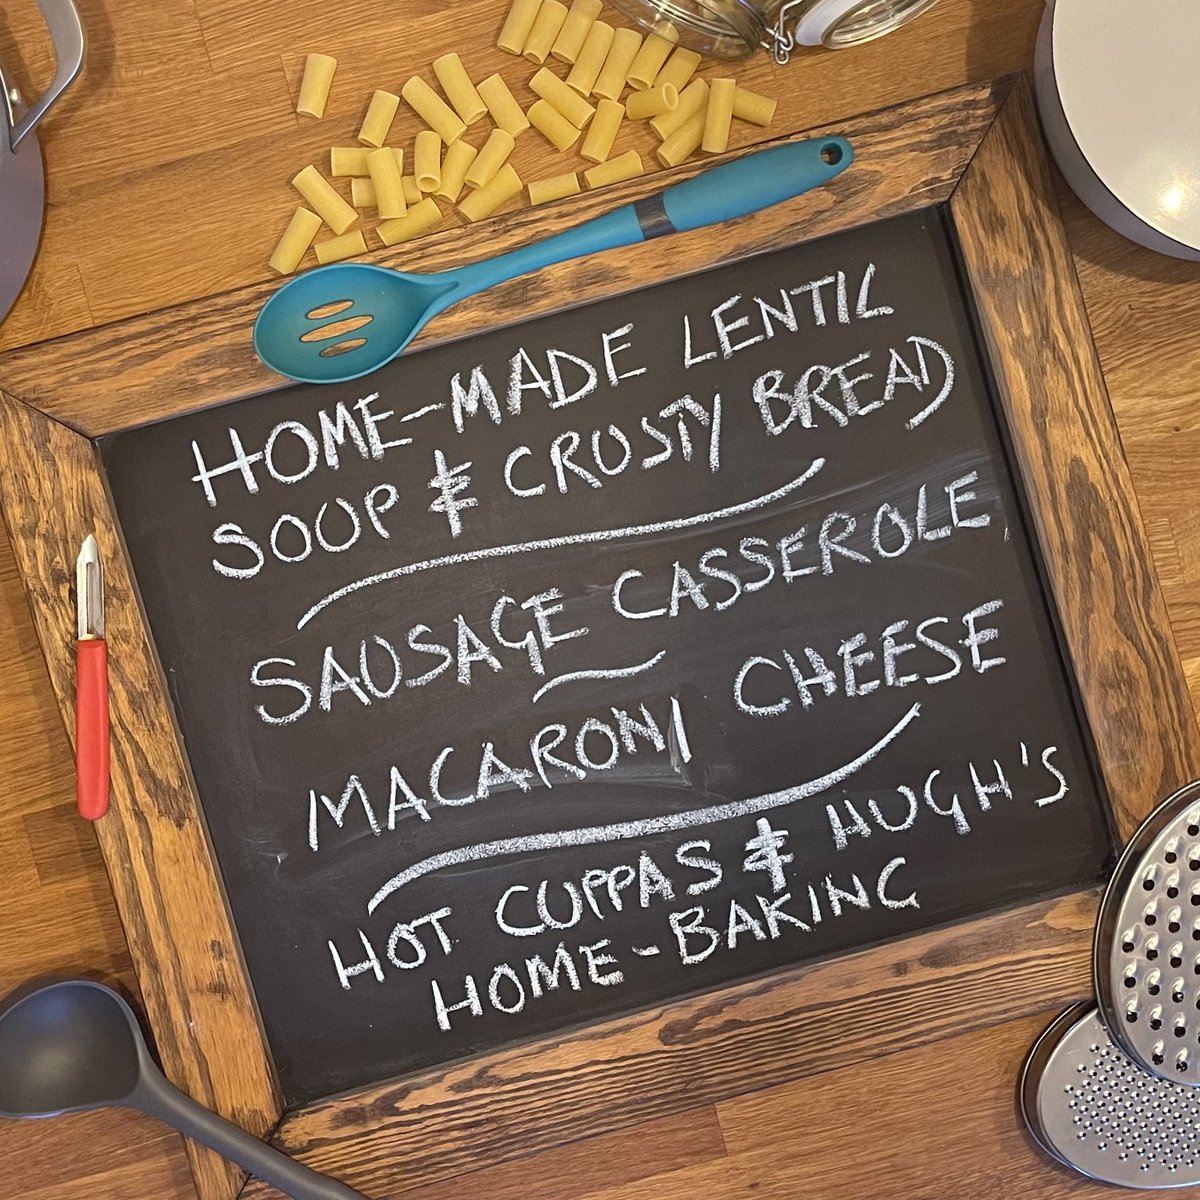 HOME-MADE LENTIL
SOUP & CRUSTY BREAD
SAUSAGE CASSEROLE
MACARONI CHEESE
HOT CUPPAS & HUGH'S
HOME-BAKING